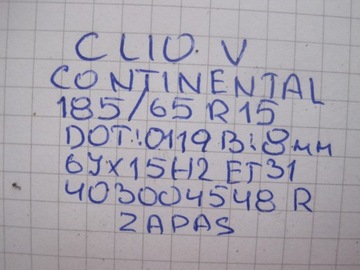 CLIO. V
CONTINENTAL
185/65 R 15
DOT:0119 B:8мм
6Jx15H2 ET31
403004548 R
ZAPAS